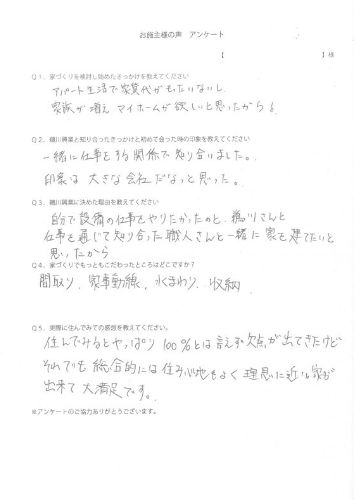 お施主様の声　アンケート
【　　　　】様
Q1．家づくりを検討し始めたきっかけを教えてください
アパート生活で家賃代がもったいないし
家族が増え マイホームが欲しいと思ったから。
Q2．鵜川興業と知り合ったきっかけと初めて会った時の印象を教えてください
一緒に仕事をする関係で知り合いました。
印象は 大きな会社だなっと思った。
Q3．鵜川興業に決めた理由を教えてください
自分で設備の仕事をやりたかったのと、鵜川さんと
仕事を通じて知り合った職人さんと一緒に家を建てたいと
思ったから
Q4．家づくりでもっともこだわったところはどこですか？
間取り、家事動線、水まわり、収納
Q5．実際に住んでみての感想を教えてください。
住んでみるとやっぱり 100%とは言えず欠点が出てきたけど
それでも 総合的には住み心地もよく 理想に近い家が
出来て 大満足です。
※アンケートのご協力ありがとうございます。